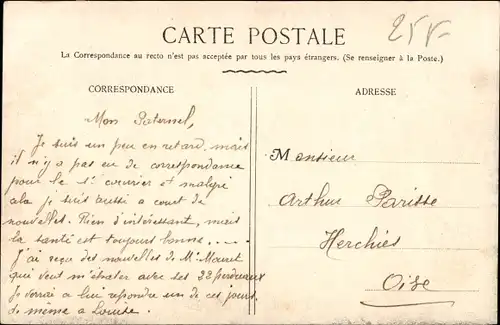 CARTE POSTALE
La Correspondance au recto n'est pas acceptée par tous les pays étrangers. (Se renseigner à la Poste.)
CORRESPONDANCE
Mon Paternel,
Je suis un peu en retard, mais
il n'y a pas eu de correspondance
pour le 1er courrier et malgré
cela je suis aussi a court de
nouvelles. Rien d'intéressant, mais
la santé est toujours bonne.....
J'ai reçu des nouvelles de Mr
qui veut m'épater avec ses 22 perdreaux
Je verrai a lui repondre un de ces jours,
de même a Louise.
ADRESSE
Monsieur
Arthur Parisse
Herchies
Oise